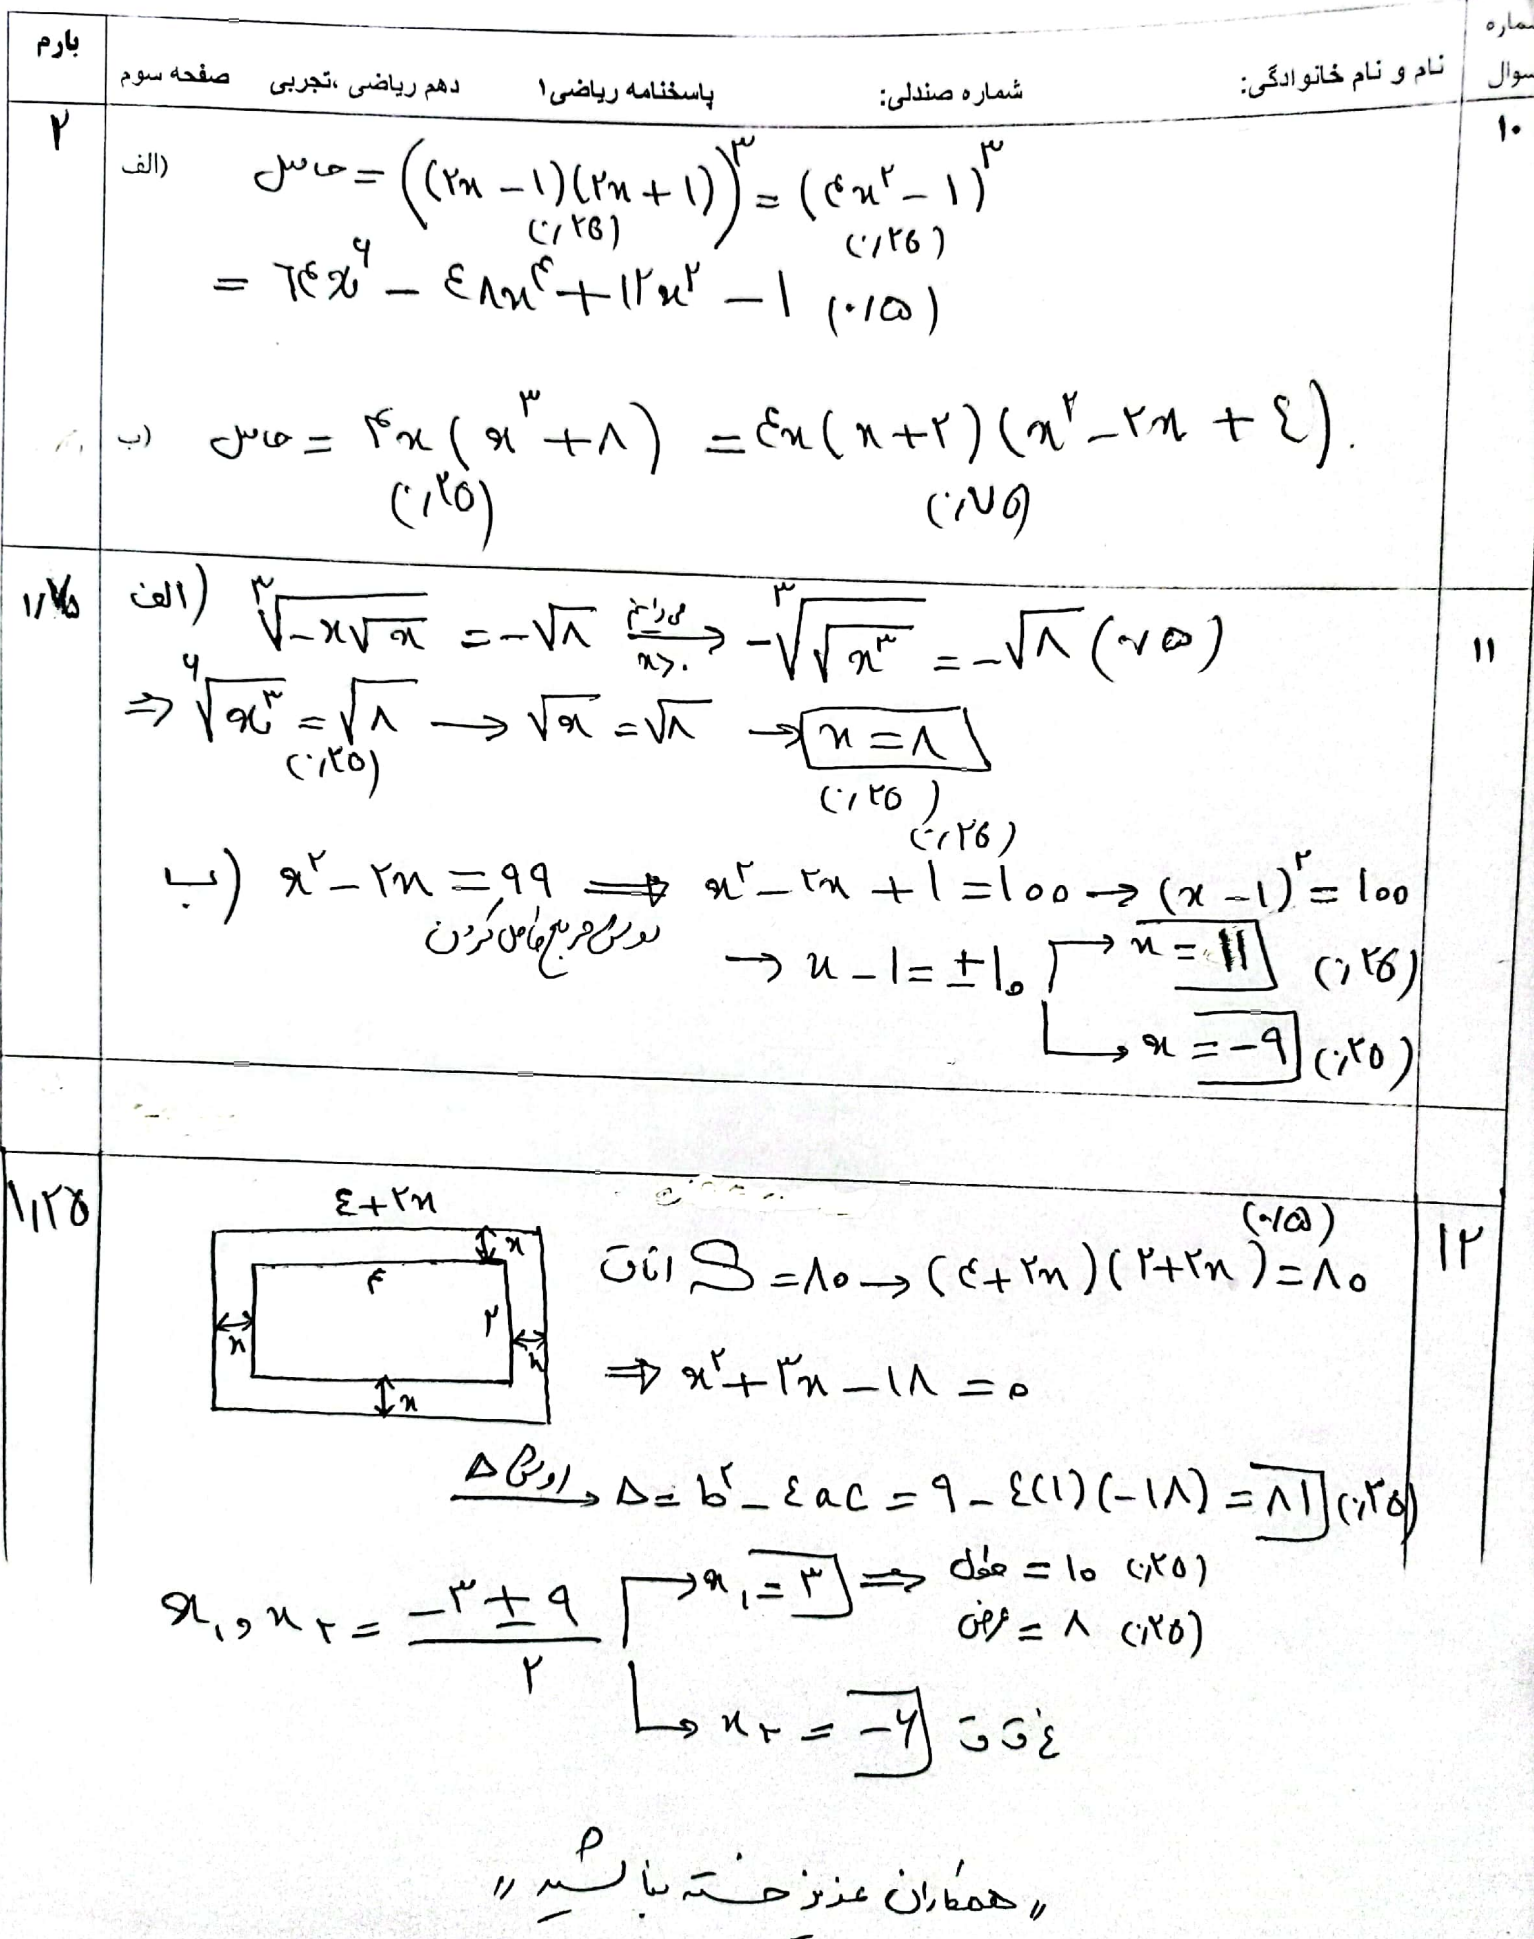 شماره سوال نام و نام خانوادگی: شماره صندلی: پاسخنامه ریاضی۱ دهم ریاضی ،تجربی صفحه سوم بارم
۱۰ ۲
الف) حاصل = ((۲x − ۱)(۲x + ۱))^۳ = (۴x^۲ − ۱)^۳
(۰٫۲۵) (۰٫۲۵)
= ۶۴x^۶ − ۴۸x^۴ + ۱۲x^۲ − ۱ (۰٫۵)
ب) حاصل = ۴x(x^۳ + ۸) = ۴x(x + ۲)(x^۲ − ۲x + ۴).
(۰٫۲۵) (۰٫۷۵)
۱۱ ۱٫۷۵
الف) ∛(−x√x) = −√۸ می‌دانیم x>۰ → −∛(√(x^۳)) = −√۸ (۰٫۲۵)
⇒ ⁶√(x^۳) = √۸ → √x = √۸ → x = ۸
(۰٫۲۵) (۰٫۲۵)
(۰٫۲۵)
ب) x^۲ − ۲x = ۹۹ ⇒ x^۲ − ۲x + ۱ = ۱۰۰ → (x − ۱)^۲ = ۱۰۰
روش مربع کامل کردن
→ x − ۱ = ±۱۰ → x = ۱۱ (۰٫۲۵)
→ x = −۹ (۰٫۲۵)
۱۲ ۱٫۲۵
۴+۲x
x
۴
۲
x
x
x
(۰٫۵)
S اتاق = ۸۰ → (۴+۲x)(۲+۲x) = ۸۰
⇒ x^۲ + ۳x − ۱۸ = ۰
روش Δ → Δ = b^۲ − ۴ac = ۹ − ۴(۱)(−۱۸) = ۸۱ (۰٫۲۵)
x₁ و x₂ = (−۳ ± ۹)/۲ → x₁ = ۳ ⇒ طول = ۱۰ (۰٫۲۵)
عرض = ۸ (۰٫۲۵)
→ x₂ = −۶ غ ق ق
"همکاران عزیز خسته نباشید"